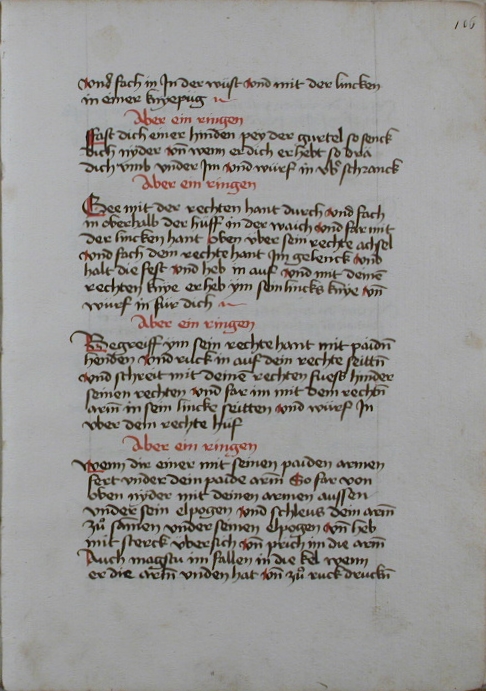 106
vnd fach in In der wüst vnd mit der lincken
in einer knyepüg
Aber ein ringen
Fast dich einer hinden pey der gürtel so senck
dich nyder vnd wenn er dich er hebt so dra
dich vmb vnder Im vnd würf in vbˢ schranck
Aber ein ringen
Gee mit der rechten hant durch vnd fach
in oberhalb der hüff in der waich vnd far mit
der lincken hant oben vber sein rechte achsel
vnd fach dein rechte hant Im gelenck vnd
halt die fest vnd heb in auf vnd mit deinē
rechten knye er heb ym sein lincks knye vn̄
würf in für dich
Aber ein ringen
Begreiff ym sein rechte hant mit paidn̄
henden vnd ruck in auf dein rechte seittn̄
vnd schreit mit deinē rechten fuess hinder
seinen rechten vnd far im mit dem rechtn̄
arm̄ in sein lincke seitten vnd würf In
vber dein rechte hüf
Aber ein ringen
Wenn dir einer mit seinen paiden armen
fert vnder dein paide arm̄ So far von
oben nyder mit deinen armen aussen
vnder sein elpogen vnd schleus dein arm̄
zů samen vnder seinen elpogen vn̄ heb
mit sterck vbersich vn̄ prich im die arm̄
Auch magstu im fallen in die kel wenn
er die arm̄ vnden hat vn̄ zů ruck druckn̄